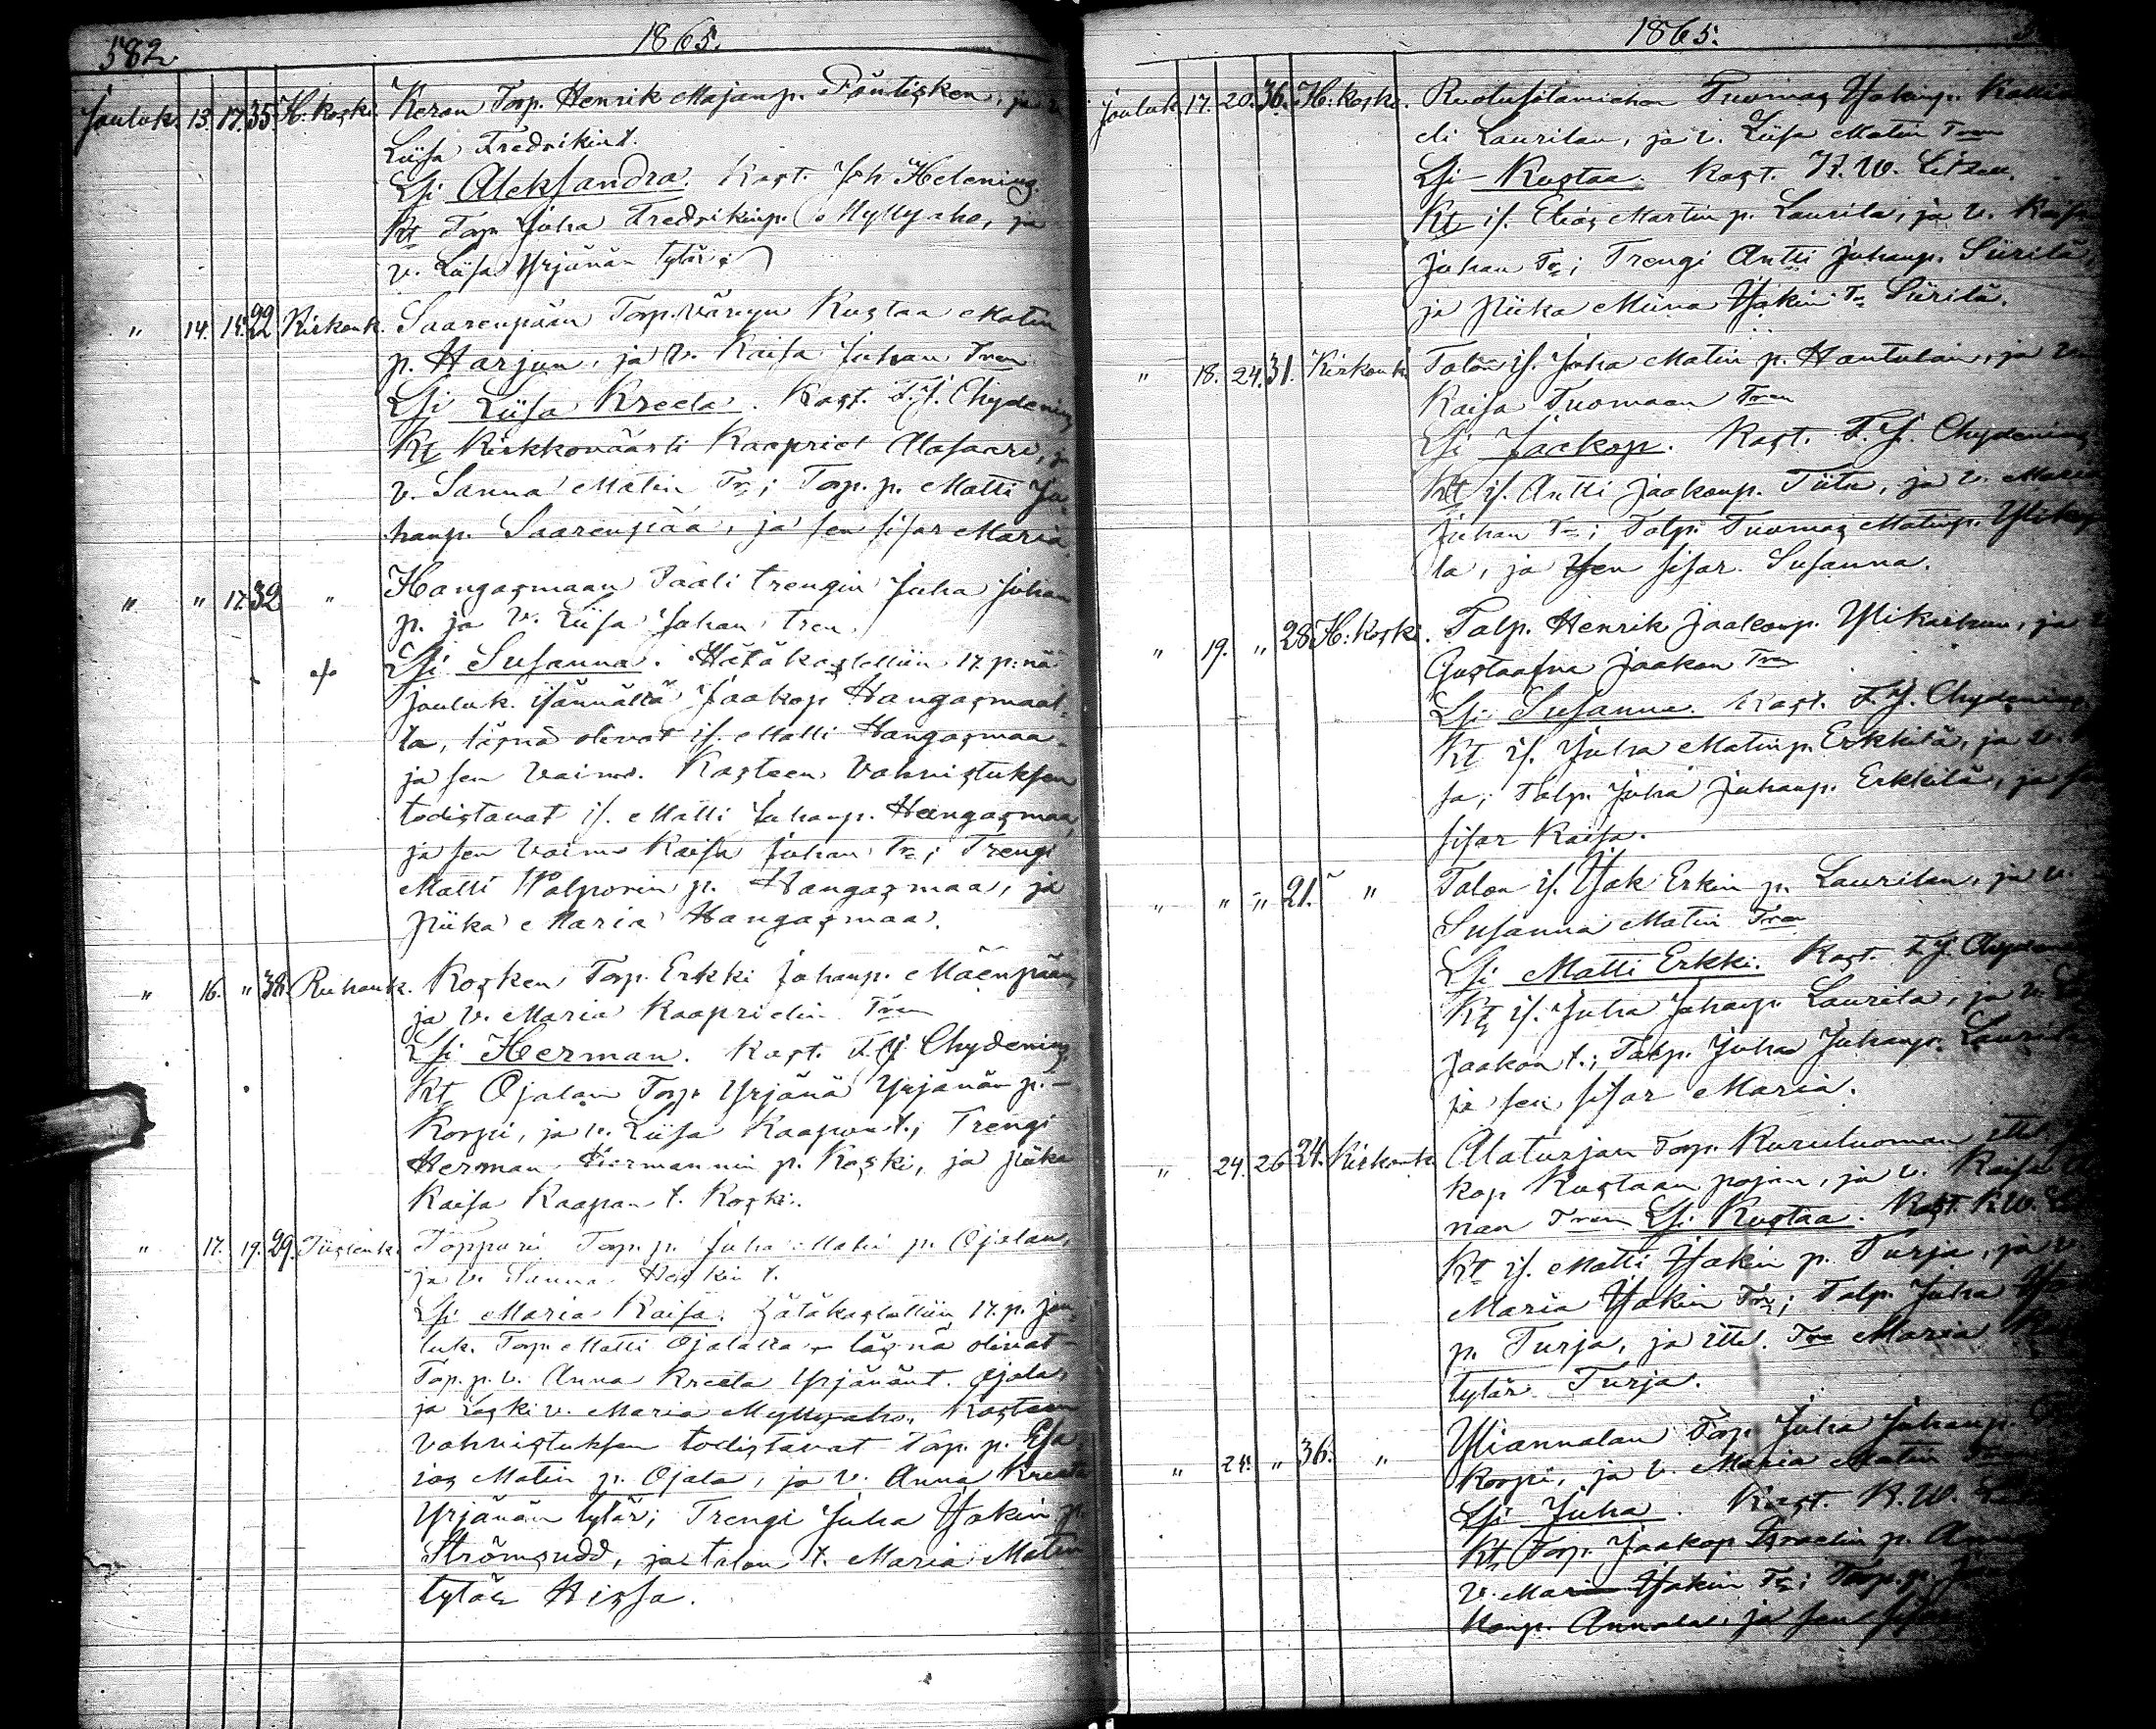 582
1865.
Jouluk. 13. 17. 35. H. koski. Keron Torp. Henrik Majanp. Pöntisken, ja v.
Liisa Fredrikin t.
Lsi Aleksandra. Kast. Joh Helenius.
Kt Torp. Juha Fredrikinp. Myllyaho, ja
v. Liisa Yrjänän tytär;
" 14. 15. 22 Kirkonk. Saarenpään Torp.vävyn Kustaa Matin
p. Harjun, ja v. Kaisa Juhan Tren
Lsi Liisa Kreeta. Kast. F.J. Chydenius
Kt Kirkkoväärti Kaapriel Alasaari, ja
v. Sanna Matin Tr; Torp. p. Matti Ju-
hanp. Saarenpää, ja sen sisar Maria.
" " 17. 32 " Hangasmaan Paali trengin Juha Juhan
p. ja v. Liisa Juhan tren
Lsi Susanna. Hätäkastettiin 17. p:nä
jouluk. isännältä Jaakop Hangasmaal-
ta, läsnä olivat is. Matti Hangasmaa
ja sen vaimo. Kasteen vahvistuksen
todistavat is. Matti Juhanp. Hangasmaa,
ja sen vaimo Kaisa Juhan Tr; Trengi
Matti Walporin p. Hangasmaa, ja
piika Maria Hangasmaa.
" 16. " 38. Ruhank. Kosken Torp. Erkki Juhanp. Mäenpään,
ja v. Maria Kaaprielin Tren
Lsi Herman. Kast. F.J. Chydenius.
Kt Ojalan Torp. Yrjänä Yrjänän p.
Korpi, ja v. Liisa Kaapon t.; Trengi
Herman Hermannin p. Koski, ja piika
Kaisa Kaapan t. Koski.
" 17. 19. 29. Tiistenk. Töppöri Torp. p. Juha Matin p. Ojalan,
ja v. Sanna Heikin t.
Lsi Maria Kaisa. Hätäkastettiin 17. p. jou-
luk. Torp. Matti Ojalalta, läsnä olivat
Torp. p. v. Anna Kreeta Yrjänänt. Ojala,
ja Leski v. Maria Myllyaho. Kasteen
vahvistuksen todistavat Torp. p. Esa-
ias Matin p. Ojala, ja v. Anna Kreeta
Yrjänän tytär; Trengi Juha Isakin p.
Strömsudd, ja talon t. Maria Matin
tytär Hissa.
1865.
Jouluk. 17. 20. 36. H. koski. Ruotusotamiehen Tuomas Isakinp. Kallio
eli Laurilan, ja v. Liisa Matin Tren
Lsi Kustaa. Kast. K. W. Litzen.
Kt is. Elias Martin p. Laurila, ja v. Kaisa
Juhan Tr; Trengi Antti Juhanp. Siirilä,
ja piika Miina Isakin Tr Siirilä.
" 18. 24. 31. Kirkonk. Talon is. Juha Matin p. Hantulan, ja v.
Kaisa Tuomaan Tren
Lsi Jaakop. Kast. F.J. Chydenius
Kt is. Antti Jaakonp. Tiitu, ja v. Maria
Juhan Tr; Talp. Tuomas Matinp.
la, ja sen sisar Susanna.
" 19. " 28. H: koski. Talp. Henrik Jaakonp. Ylikaihun, ja v.
Gustaafva Jaakon Tren
Lsi Susanna. Kast. F.J. Chydenius
Kt is. Juha Matinp. Erkkilä, ja v.
sa; Talp. Juha Juhanp. Erkkilä, ja sen
sisar Kaisa.
" " " 21. " Talon is. Isak Erkin p. Laurilan, ja v.
Susanna Matin Tren
Lsi Matti Erkki. Kast. F.J. Chydenius
Kt is. Juha Juhanp. Laurila, ja v.
Jaakon t.; Talp. Juha Juhanp. Laurila
ja sen sisar Maria.
" 24. 26. 24. Kirkonk. Alaturjan Torp. Kuruluoman
kop Kustaan pojan, ja v. Kaisa
nan Tren Lsi Kustaa. Kast. K.W.
Kt is. Matti Isakin p. Turja, ja v.
Maria Isakin Tr; Talp. Juha
p. Turja, ja itt. Tr Maria
tytär Turja.
" 24. " 36. " Yliannalan Torp. Juha Juhanp.
Korpi, ja v. Maria Matin Tren
Lsi Juha. Kast. K.W.
Kt Torp. Jaakop Israelin p.
v. Maria Isakin Tr; Torp. p.
konp. Annala, ja sen sisar